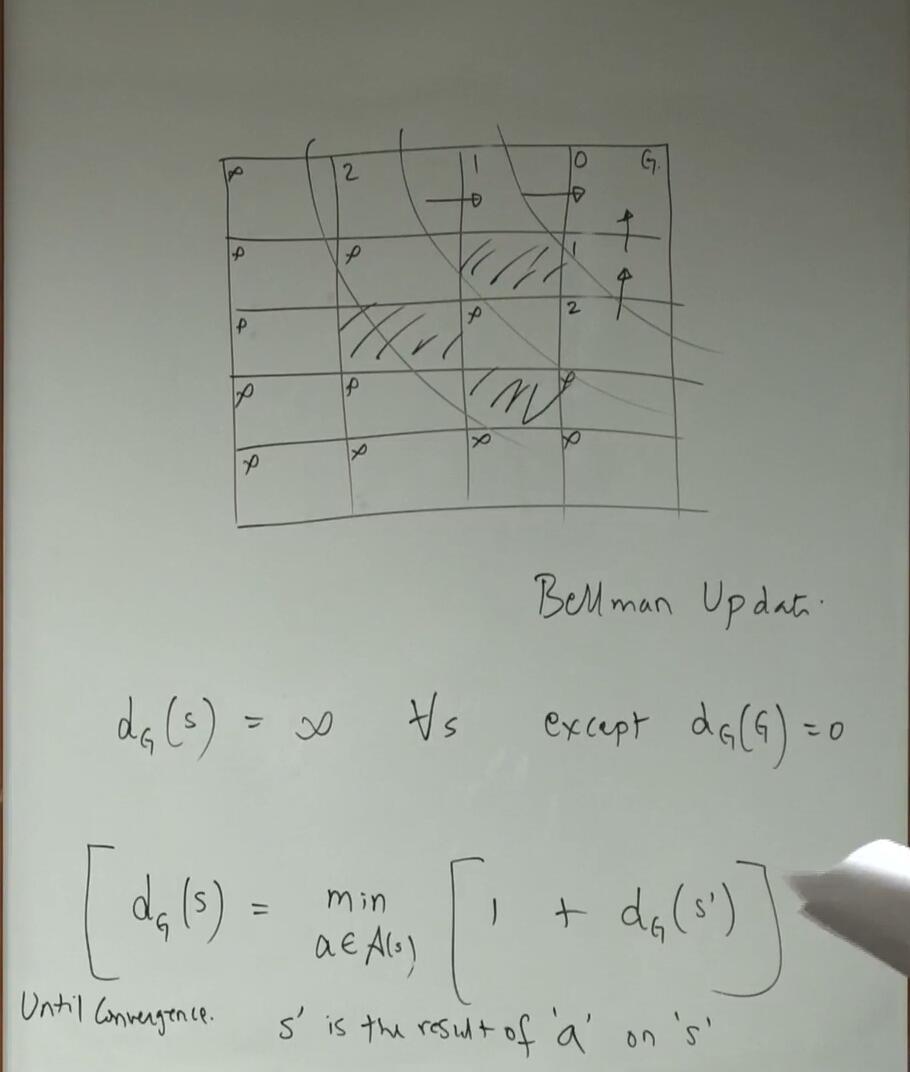 ∞ 2 1 0 G.
∞ ∞ 1
∞ ∞ 2
∞ ∞ ∞
∞ ∞ ∞ ∞
Bellman Updat.
d_G(s) = ∞ ∀s except d_G(G) = 0
[ d_G(s) = min a∈A(s) [ 1 + d_G(s') ]
Until Convergence.
s' is the result of 'a' on 's'